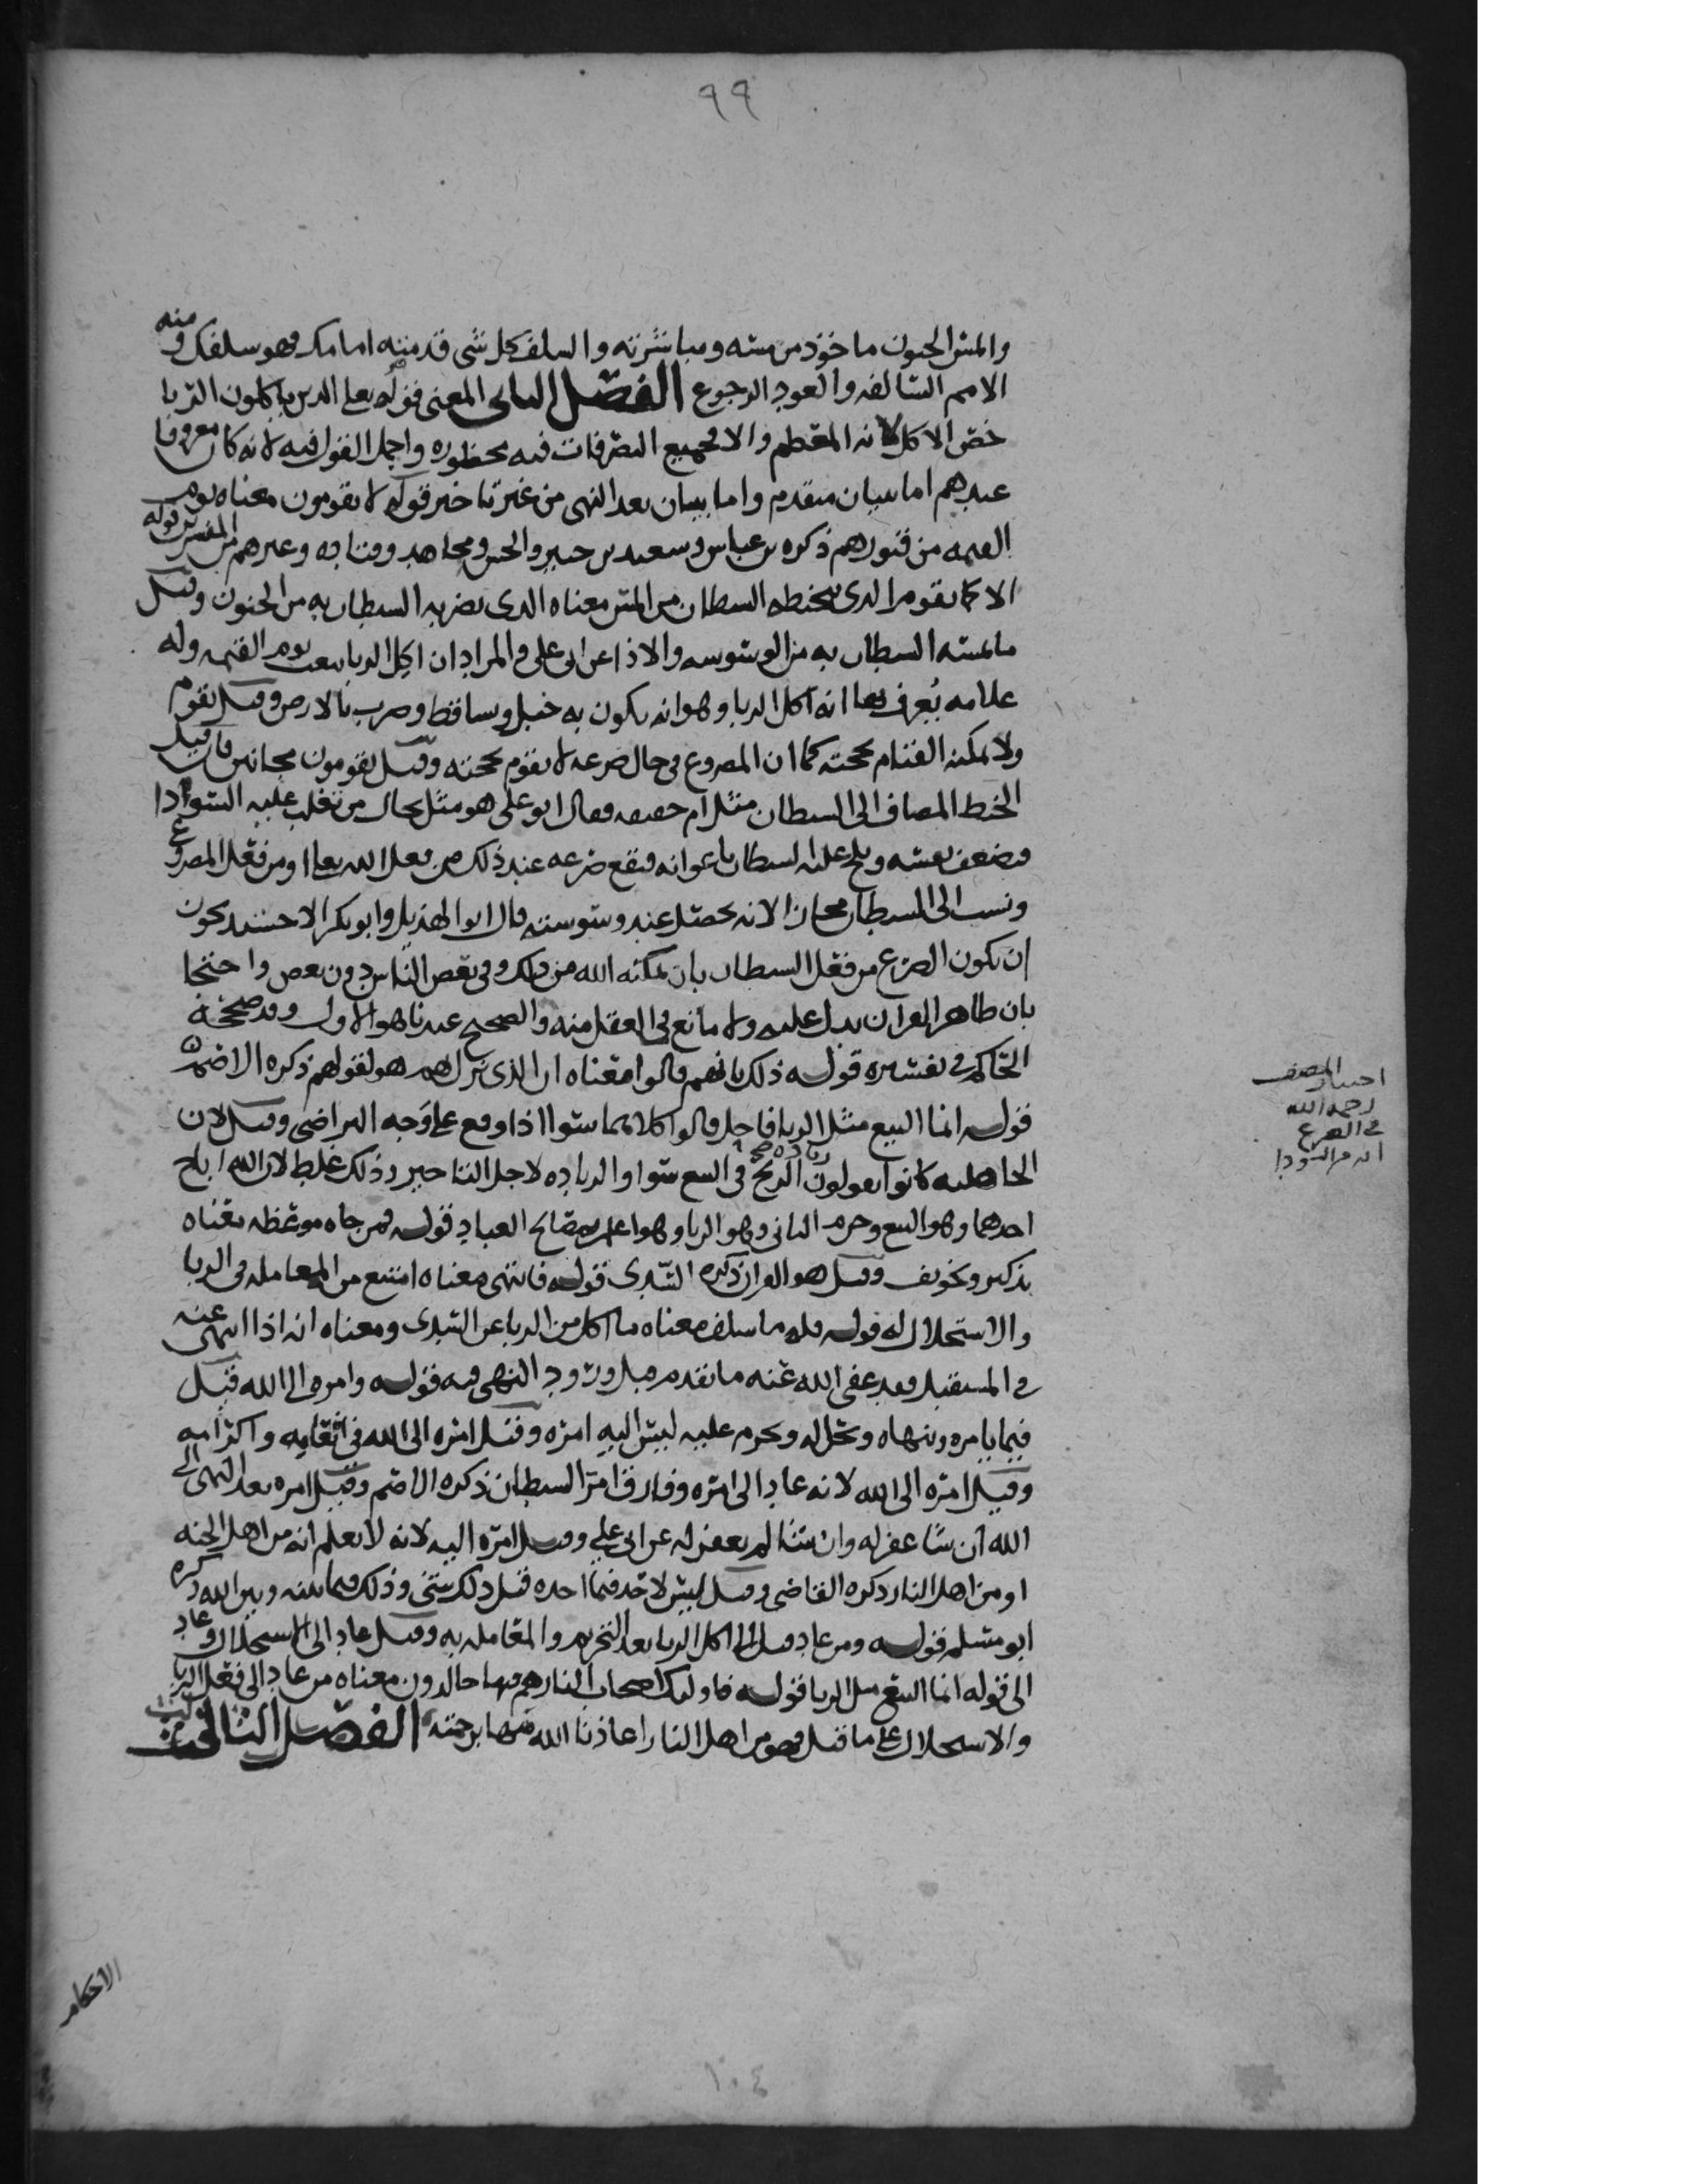 ٩٩
والمس الجنون ماخوذ من مسه ومباشرته والسلف كل شي قدمته امامك فهو سلفك ومنه
الامم السالفه والعود الرجوع الفصل الثاني المعنى قوله تعالى الذين ياكلون الربا
خص الاكل لانه المعظم والا فجميع التصرفات فيه محظوره واجمل القول فيه لانه كان معروفا
عندهم اما ببيان متقدم واما ببيان بعد النهي من غير تاخير قوله لا يقومون معناه يوم
القيمه من قبورهم ذكره بن عباس وسعيد بن جبير والحسن ومجاهد وقتاده وغيرهم من المفسرين قوله
الا كما يقوم الذي يتخبطه الشيطان من المس معناه الذي يضربه الشيطان به من الجنون وقيل
ما يمسه الشيطان به من الوسوسه والاذا عن ابي علي والمراد ان اكل الربا يبعث يوم القيمه وله
علامه يُعرف بها انه اكل الربا وهو انه يكون به خبل وتساقط وضرب بالارض وقيل يقوم
ولا يمكنه القيام بحجته كما ان المصروع في حال صرعه لا يقوم بحجته وقيل يقومون مجانين فان قيل
الخبط المضاف الى الشيطان مثل ام حقيقه فقال ابو علي هو مثل بحال من تغلب عليه السودا
فتضعف نفسه ويلح عليه الشيطان باعوانه فيقع صرعه عند ذلك من فعل الله تعالى او من فعل المصروع
ونسب الى الشيطان مجازا لانه يحصل عند وسوسته قال ابو الهذيل وابو بكر الاخشيد يجوز
ان يكون الصرع من فعل الشيطان بان يمكنه الله من ذلك وفي بعض الناس دون بعض واحتجا
بان ظاهر القران يدل عليه ولا مانع في العقل منه والصحيح عندنا هو الاول وقد صححه
الحاكم في تفسيره قوله ذلك بانهم قالوا معناه ان الذي نزل بهم هو لقولهم ذكره الاصم
قوله انما البيع مثل الربا فاحل قالوا كلاهما سوا اذا وقع على وجه التراضي وقيل لان
الجاهليه كانوا يقولون زياده الربح في البيع سوا والزياده لاجل التاخير وذلك غلط لان الله اباح
احدهما وهو البيع وحرم الثاني وهو الربا وهو اعلم بمصالح العباد قوله فمن جاه موعظه معناه
تذكير وتخويف وقيل هو القران ذكره السدي قوله فانتهى معناه امتنع من المعامله في الربا
والاستحلال له قوله فله ما سلف معناه ما اكل من الربا عن السدي ومعناه انه اذا انتهى عنه
في المستقبل فقد عفى الله عنه ما تقدم قبل ورود النهي فيه قوله وامره الى الله قيل
فيما يامره وينهاه ويحل له ويحرم عليه ليس اليه امره وقيل امره الى الله في عقابه واكرامه
وقيل امره الى الله لانه عاد الى امره وفارق امر الشيطان ذكره الاصم وقيل امره بعد النهي الى
الله ان شا غفر له وان شا لم يغفر له عن ابي علي وقيل امره اليه لانه لا يعلم انه من اهل الجنه
او من اهل النار ذكره القاضي وقيل ليس لاحد فيما اخذه قبل ذلك شي وذلك فيما بينه وبين الله ذكره
ابو مسلم قوله ومن عاد قيل الى اكل الربا بعد التحريم والمعامله به وقيل عاد الى الاستحلال وعاد
الى قوله انما البيع مثل الربا قوله فاوليك اصحاب النار هم فيها خالدون معناه من عاد الى فعل الربا
والاستحلال على ما قيل فهو من اهل النار اعاذنا الله منها برحمته الفصل الثالث
اختيار المصنف
رحمه الله
في الصرع
انه من السودا
الاحكام
١٠٤